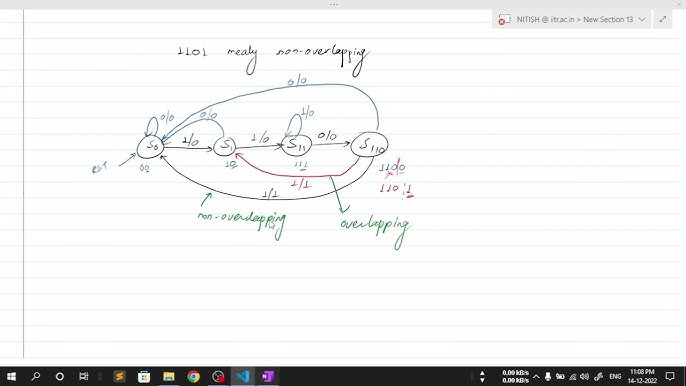 NITISH @ iitr.ac.in > New Section 13
1101 mealy non-overlapping
0/0
0/0 0/0 1/0
S0 1/0 S1 1/0 S11 0/0 S110
rst 00 10 111 1100
1/1 110:1
1/1
non-overlapping overlapping
0.00 kB/s
0.00 kB/s
11:08 PM
14-12-2022